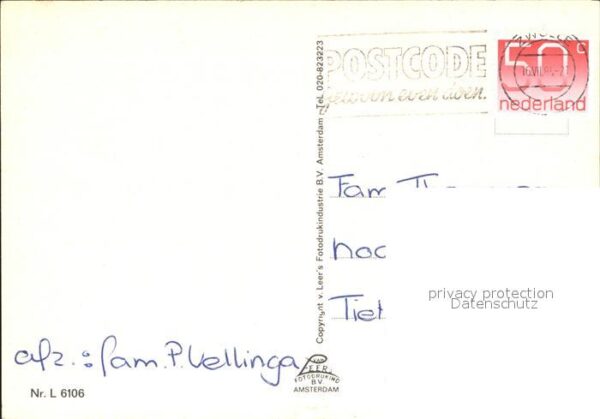 POSTCODE
gewoon even doen.
ZWOLLE
50c
nederland
Copyright v. Leer's Fotodrukindustrie B.V. Amsterdam - Tel. 020-823223
Fam
hoc
Tiel
privacy protection
Datenschutz
afz.: fam. P. Vellinga
VAN
LEER
FOTODRUKIND
B.V.
AMSTERDAM
Nr. L 6106